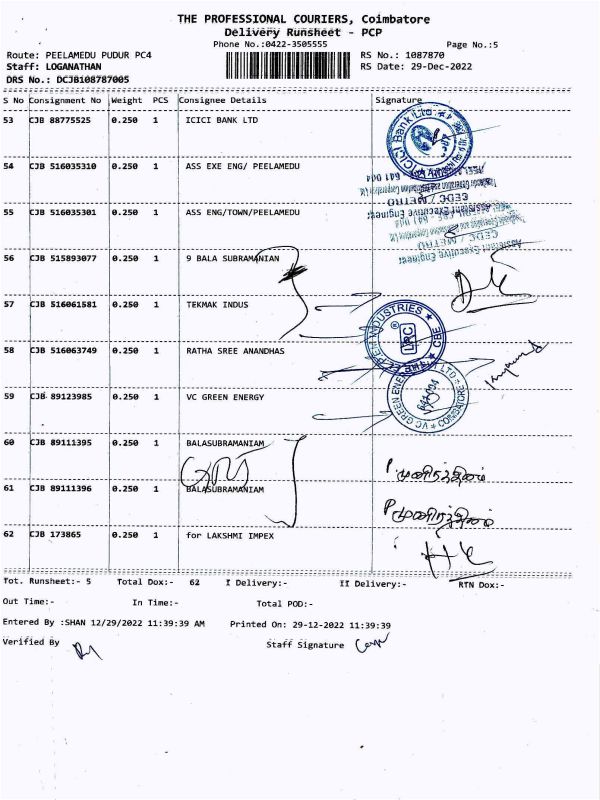 THE PROFESSIONAL COURIERS, Coimbatore
Delivery Runsheet - PCP
Phone No.:0422-3505555
Page No.:5
Route: PEELAMEDU PUDUR PC4
RS No.: 1087870
Staff: LOGANATHAN
RS Date: 29-Dec-2022
DRS No.: DCJB108787005
S No Consignment No Weight PCS Consignee Details Signature
53 CJB 88775525 0.250 1 ICICI BANK LTD
ICICI Bank Ltd.
54 CJB 516035310 0.250 1 ASS EXE ENG/ PEELAMEDU
641 004
CEDC / METRO
55 CJB 516035301 0.250 1 ASS ENG/TOWN/PEELAMEDU
Assistant Executive Engineer
CEDC / METRO
Assistant Executive Engineer
56 CJB 515893077 0.250 1 9 BALA SUBRAMANIAN
57 CJB 516061581 0.250 1 TEKMAK INDUS
INDUSTRIES ★ CBE ★
58 CJB 516063749 0.250 1 RATHA SREE ANANDHAS
59 CJB 89123985 0.250 1 VC GREEN ENERGY
VC GREEN ENERGY COIMBATORE
60 CJB 89111395 0.250 1 BALASUBRAMANIAM
61 CJB 89111396 0.250 1 BALASUBRAMANIAM
62 CJB 173865 0.250 1 for LAKSHMI IMPEX
Tot. Runsheet:- 5 Total Dox:- 62 I Delivery:- II Delivery:- RTN Dox:-
Out Time:- In Time:- Total POD:-
Entered By :SHAN 12/29/2022 11:39:39 AM Printed On: 29-12-2022 11:39:39
Verified By Staff Signature